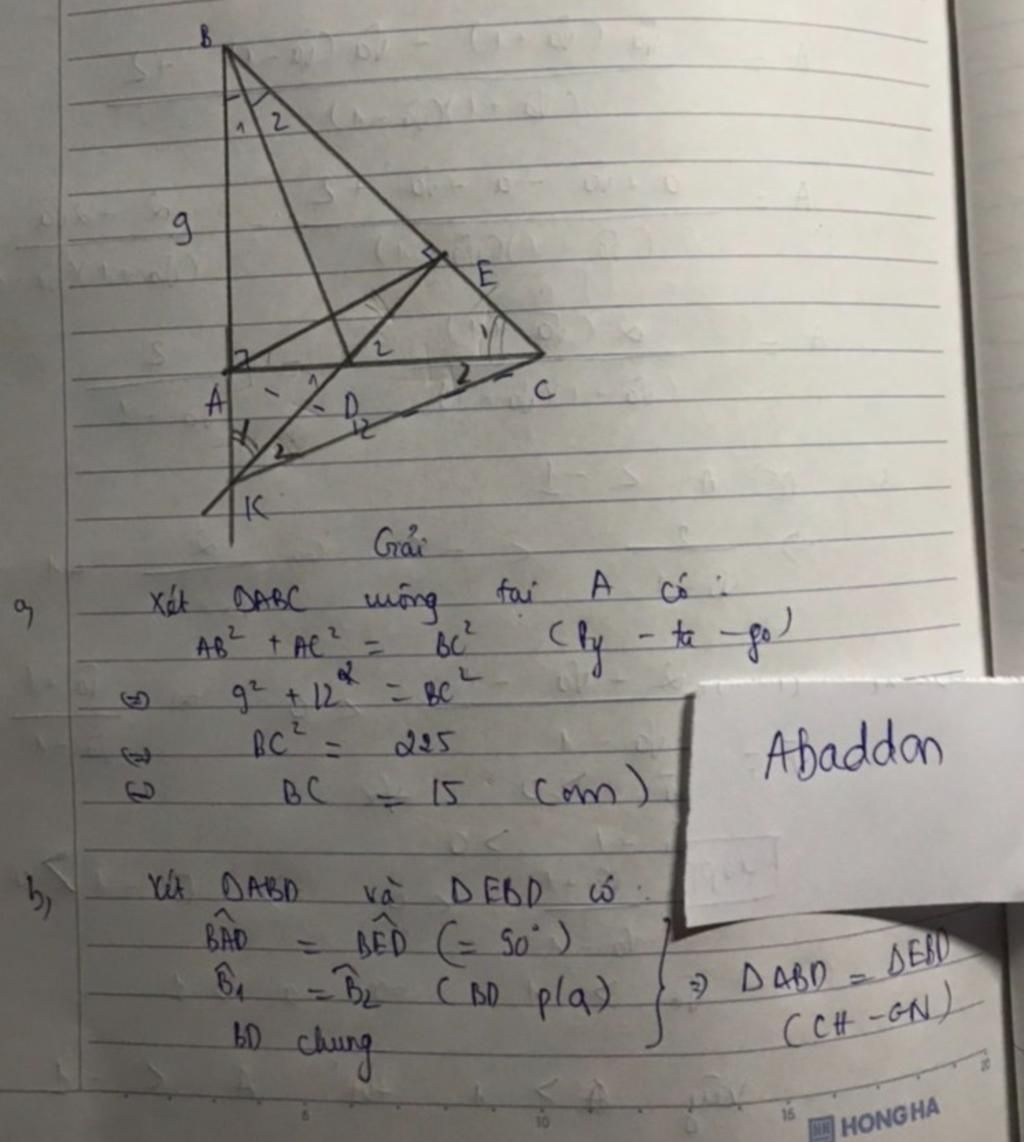 B
1 2
9
E
A 1 D 2 2 C
12
1 2
K
Giải
a, Xét ΔABC vuông tại A có :
AB² + AC² = BC² (Py - ta - go)
⇔ 9² + 12² = BC²
⇔ BC² = 225
⇔ BC = 15 (cm)
Abaddon
b, Xét ΔABD và ΔEBD có :
B̂AD = BÊD (= 90°)
B̂₁ = B̂₂ (BD p/g)
BD chung
⇒ ΔABD = ΔEBD
(CH - GN)
5 10 15 20
HONG HA